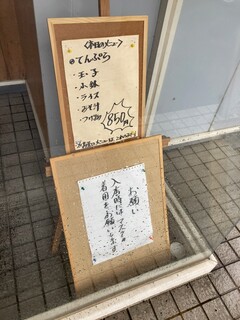 〈本日のメニュー〉
◎てんぷら
・玉子
・小鉢
・ライス
・みそ汁
・つけ物
850円
お願い
入店時にはマスクの
着用をお願いします